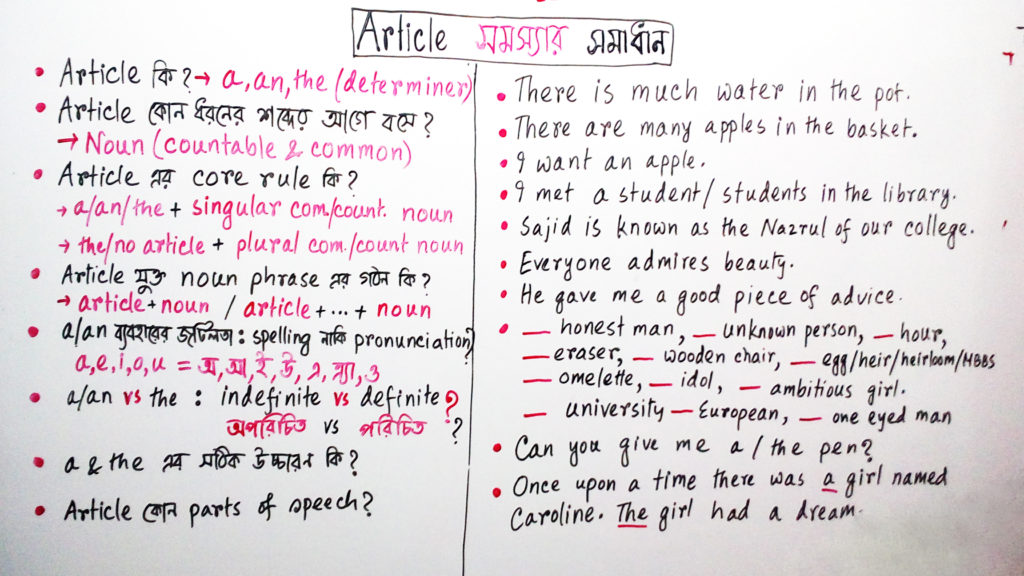 Article সমস্যার সমাধান
• Article কি? → a, an, the (determiner)
• Article কোন ধরনের শব্দের আগে বসে?
→ Noun (countable & common)
• Article এর core rule কি?
→ a/an/the + singular com./count. noun
→ the/no article + plural com./count noun
• Article যুক্ত noun phrase এর গঠন কি?
→ article + noun / article + ... + noun
• a/an ব্যবহারের জটিলতা : spelling নাকি pronunciation?
a, e, i, o, u = অ, আ, ই, উ, এ, অ্যা, ও
• a/an vs the : indefinite vs definite ?
অপরিচিত vs পরিচিত ?
• a & the এর সঠিক উচ্চারন কি?
• Article কোন parts of speech?
• There is much water in the pot.
• There are many apples in the basket.
• I want an apple.
• I met a student/ students in the library.
• Sajid is known as the Nazrul of our college.
• Everyone admires beauty.
• He gave me a good piece of advice.
• — honest man, — unknown person, — hour,
— eraser, — wooden chair, — egg/heir/heirloom/MBBS
— omelette, — idol, — ambitious girl.
— university — European, — one eyed man
• Can you give me a / the pen?
• Once upon a time there was a girl named
Caroline. The girl had a dream.